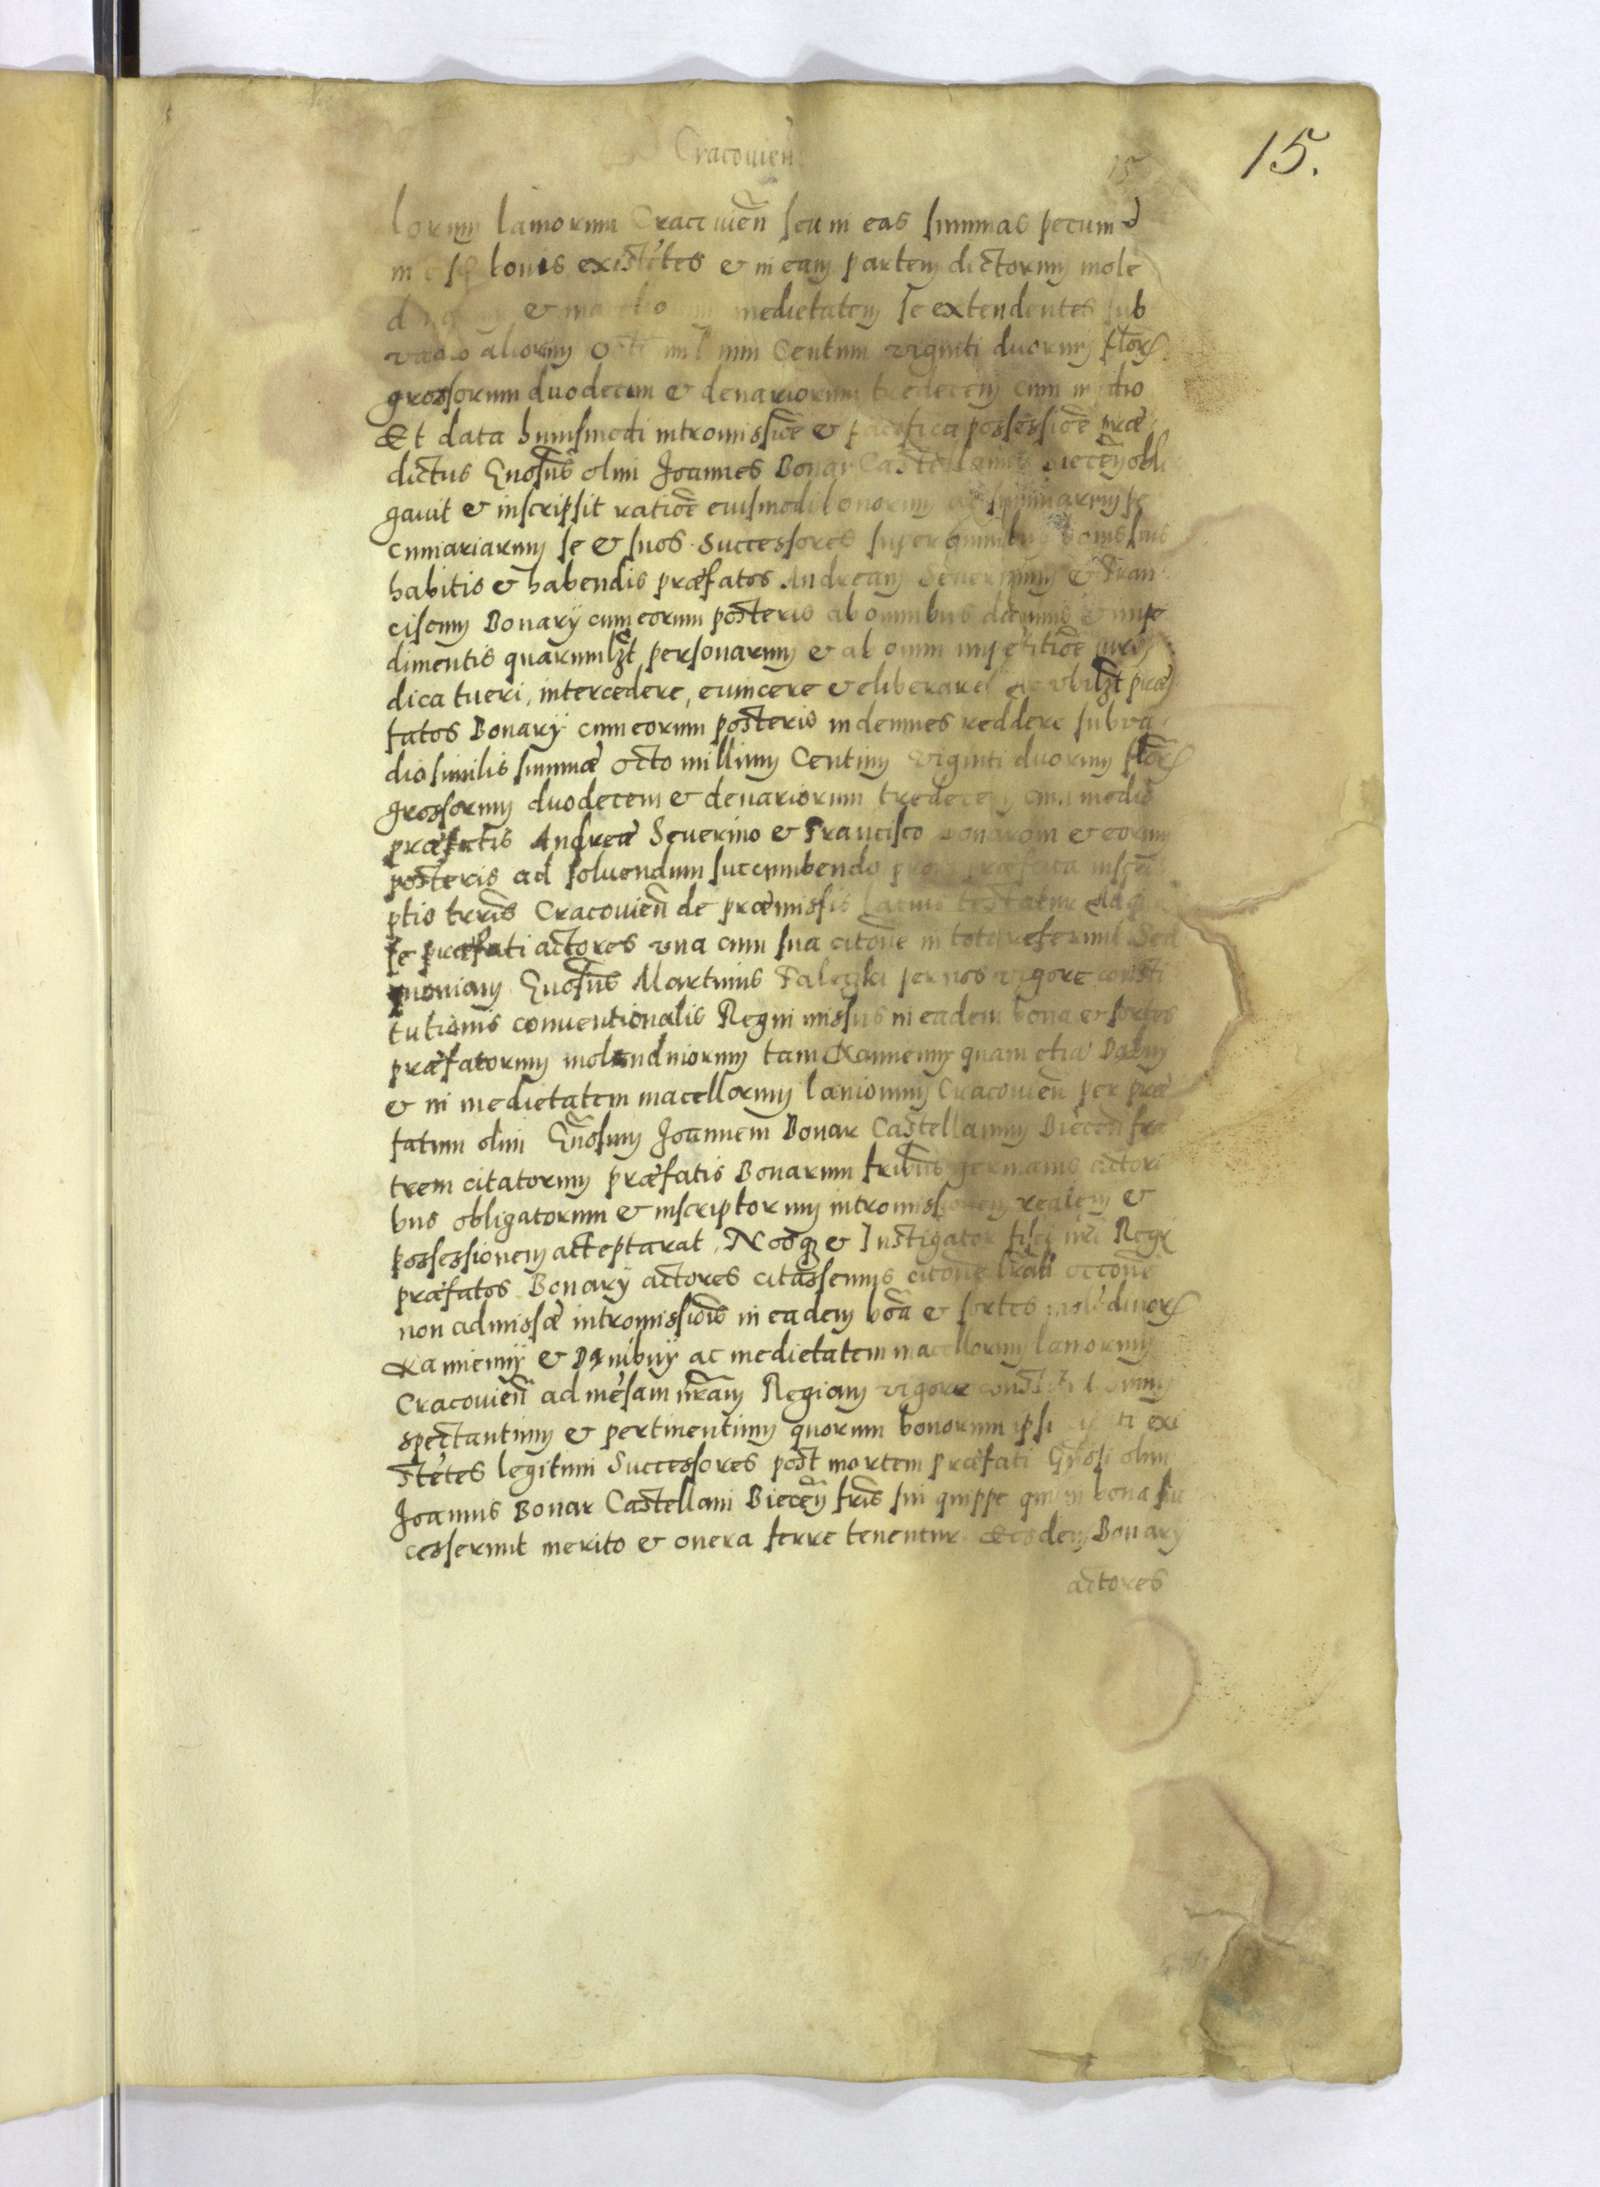 Cracovien̄
15.
lorum laniorum Cracovien̄ seu in eas summas pecuniā
bonis existētes & in eam partem dictorum mole
& medietatem se extendentes sub
vadio aliorum Centum viginti duorum flor
grossorum duodecim & denariorum tredecem cum medio
Et data huiusmodi intromissiōe & pacifica possessiōe præ
dictus Gnosus olim Joannes Bonar Castellanus Biecen̄ obli
gavit & inscripsit ratiōe eiusmodi bonorum ac summarum pe
cuniariarum se & suos Successores super omnibus bonis suis
habitis & habendis præfatos Andream Severinum & Fran
ciscum Bonary cum eorum posteris ab omnibus damnis & impe
dimentis quarumlzt personarum & ab omni impetitiōe iuri
dica tueri, intercedere, evincere & eliberare ac ubilzt præ
fatos Bonary cum eorum posteris indemnes reddere sub va
dio similis summæ octo millium Centum viginti duorum flor
grossorum duodecem & denariorum tredecem cum medio
præfatis Andreæ Severino & Francisco Bonarom & eorum
posteris ad solvendum succumbendo prout præfata inscri
ptio trris Cracovien̄ de præmissis latius testatur Ad quā
se præfati actores una cum sua citōne in toto referunt Sed
quoniam Gnosus Martinus per nos vigore consti
tutionis conventionalis Regni missus in eadem bona & sortes
præfatorum molendinorum tam Kamienny quam etiā Dolny
& in medietatem macellorum laniorum Cracovien̄ per præ
fatum olim Gnosum Joannem Bonar Castellanum Biecen̄ fra
trem citatorum præfatis Bonarum fribus germanis actori
bus obligatorum & inscriptorum intromissionem realem &
possessionem acceptarat, Nosq & Instigator fisci nri Regi
præfatos Bonary actores citassemus citōne occōne
non admissæ intromissiōis in eadem bōa & sortes molēdinor
Kamienny & Dolny ac medietatem macellorum laniorum
Cracovien̄ ad mēsam nram Regiam vigore constitutionum
spectantium & pertinentium quorum bonorum ipsi citati exi
stētes legitimi Successores post mortem præfati Gnosi olim
Joannis Bonar Castellani Biecen̄ fris sui quippe qui in bona suc
cesserunt merito & onera ferre tenentur Eosdem Bonary
actores